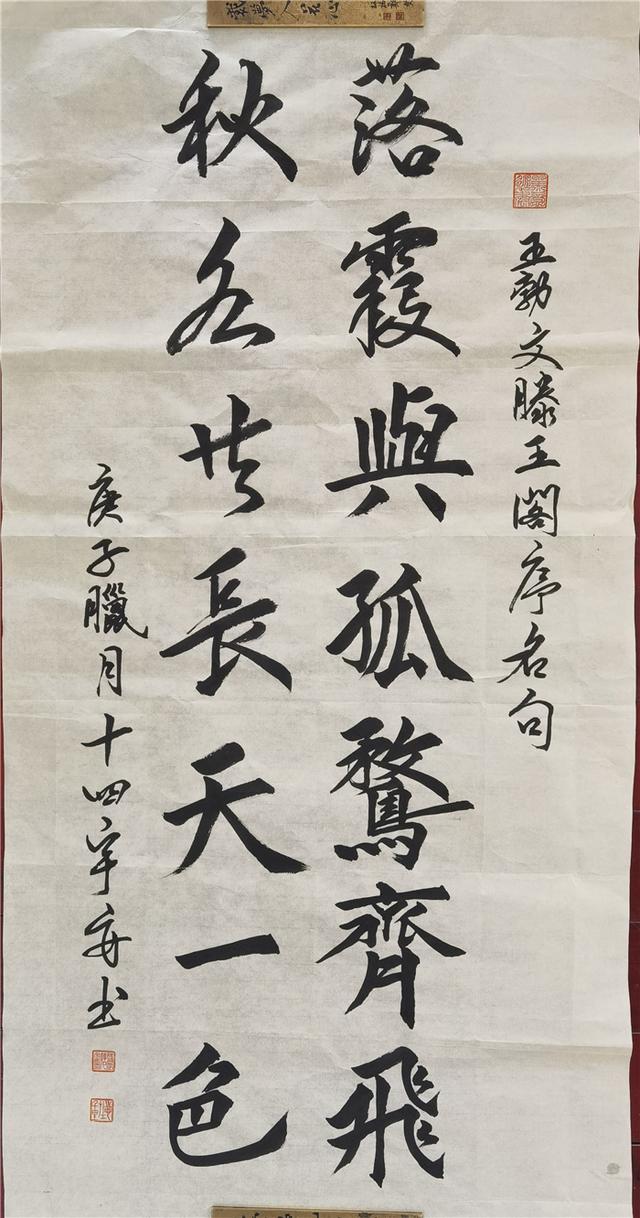 王勃文滕王閣序名句
落霞與孤鶩齊飛
秋水共長天一色
庚子臘月十四宇安书